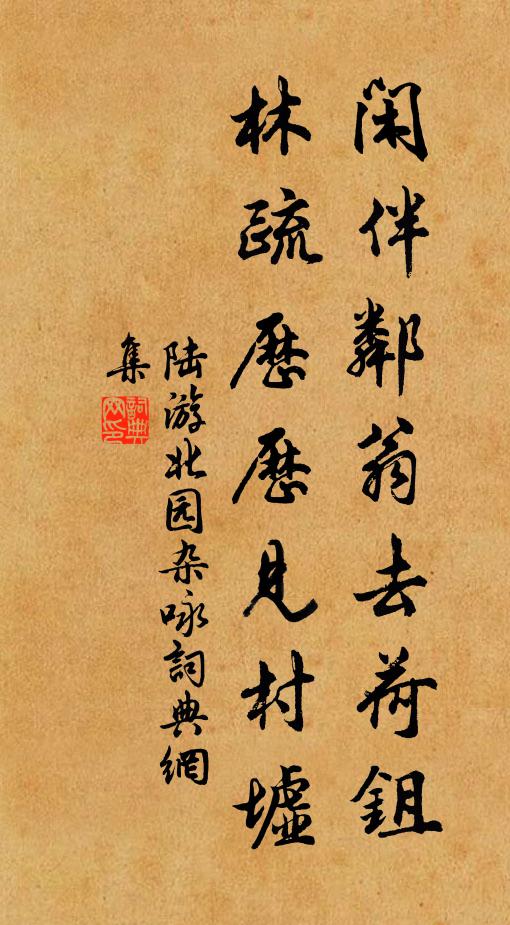 闲伴鄰翁去荷鉏
林疏歷歷見村墟
陆游北园杂咏詞典網
集
詞典網印